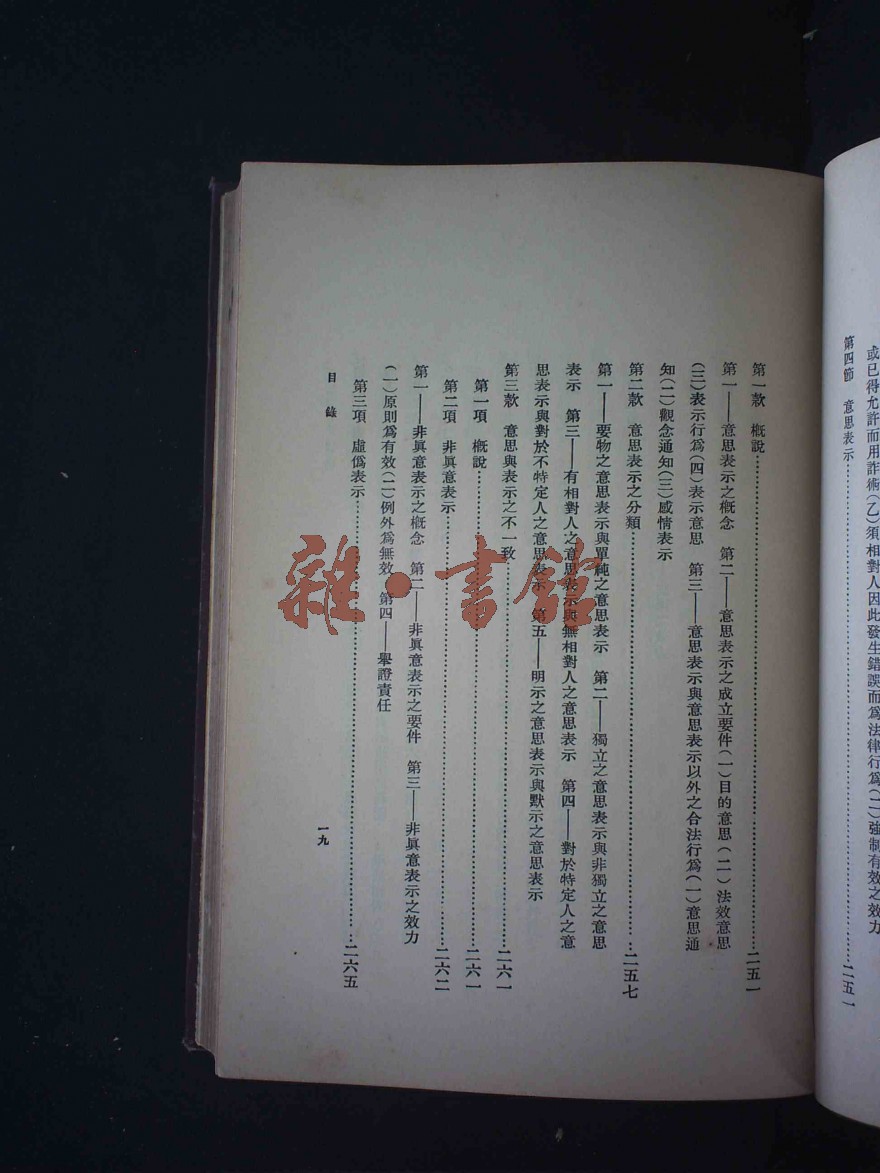 或已得允許而用詐術(乙)須相對人因此發生錯誤而爲法律行爲(二)強制有效之效力
第四節　意思表示……二五一
第一款　概說……二五一
第一——意思表示之概念　第二——意思表示之成立要件(一)目的意思(二)法效意思
(三)表示行爲(四)表示意思　第三——意思表示與意思表示以外之合法行爲(一)意思通
知(二)觀念通知(三)感情表示
第二款　意思表示之分類……二五七
第一——要物之意思表示與單純之意思表示　第二——獨立之意思表示與非獨立之意思
表示　第三——有相對人之意思表示與無相對人之意思表示　第四——對於特定人之意
思表示與對於不特定人之意思表示　第五——明示之意思表示與默示之意思表示
第三款　意思與表示之不一致……二六一
第一項　概說……二六一
第二項　非眞意表示……二六二
第一——非眞意表示之概念　第二——非眞意表示之要件　第三——非眞意表示之效力
(一)原則爲有效(二)例外爲無效　第四——舉證責任
第三項　虛僞表示……二六五
目錄
一九
雜·書館